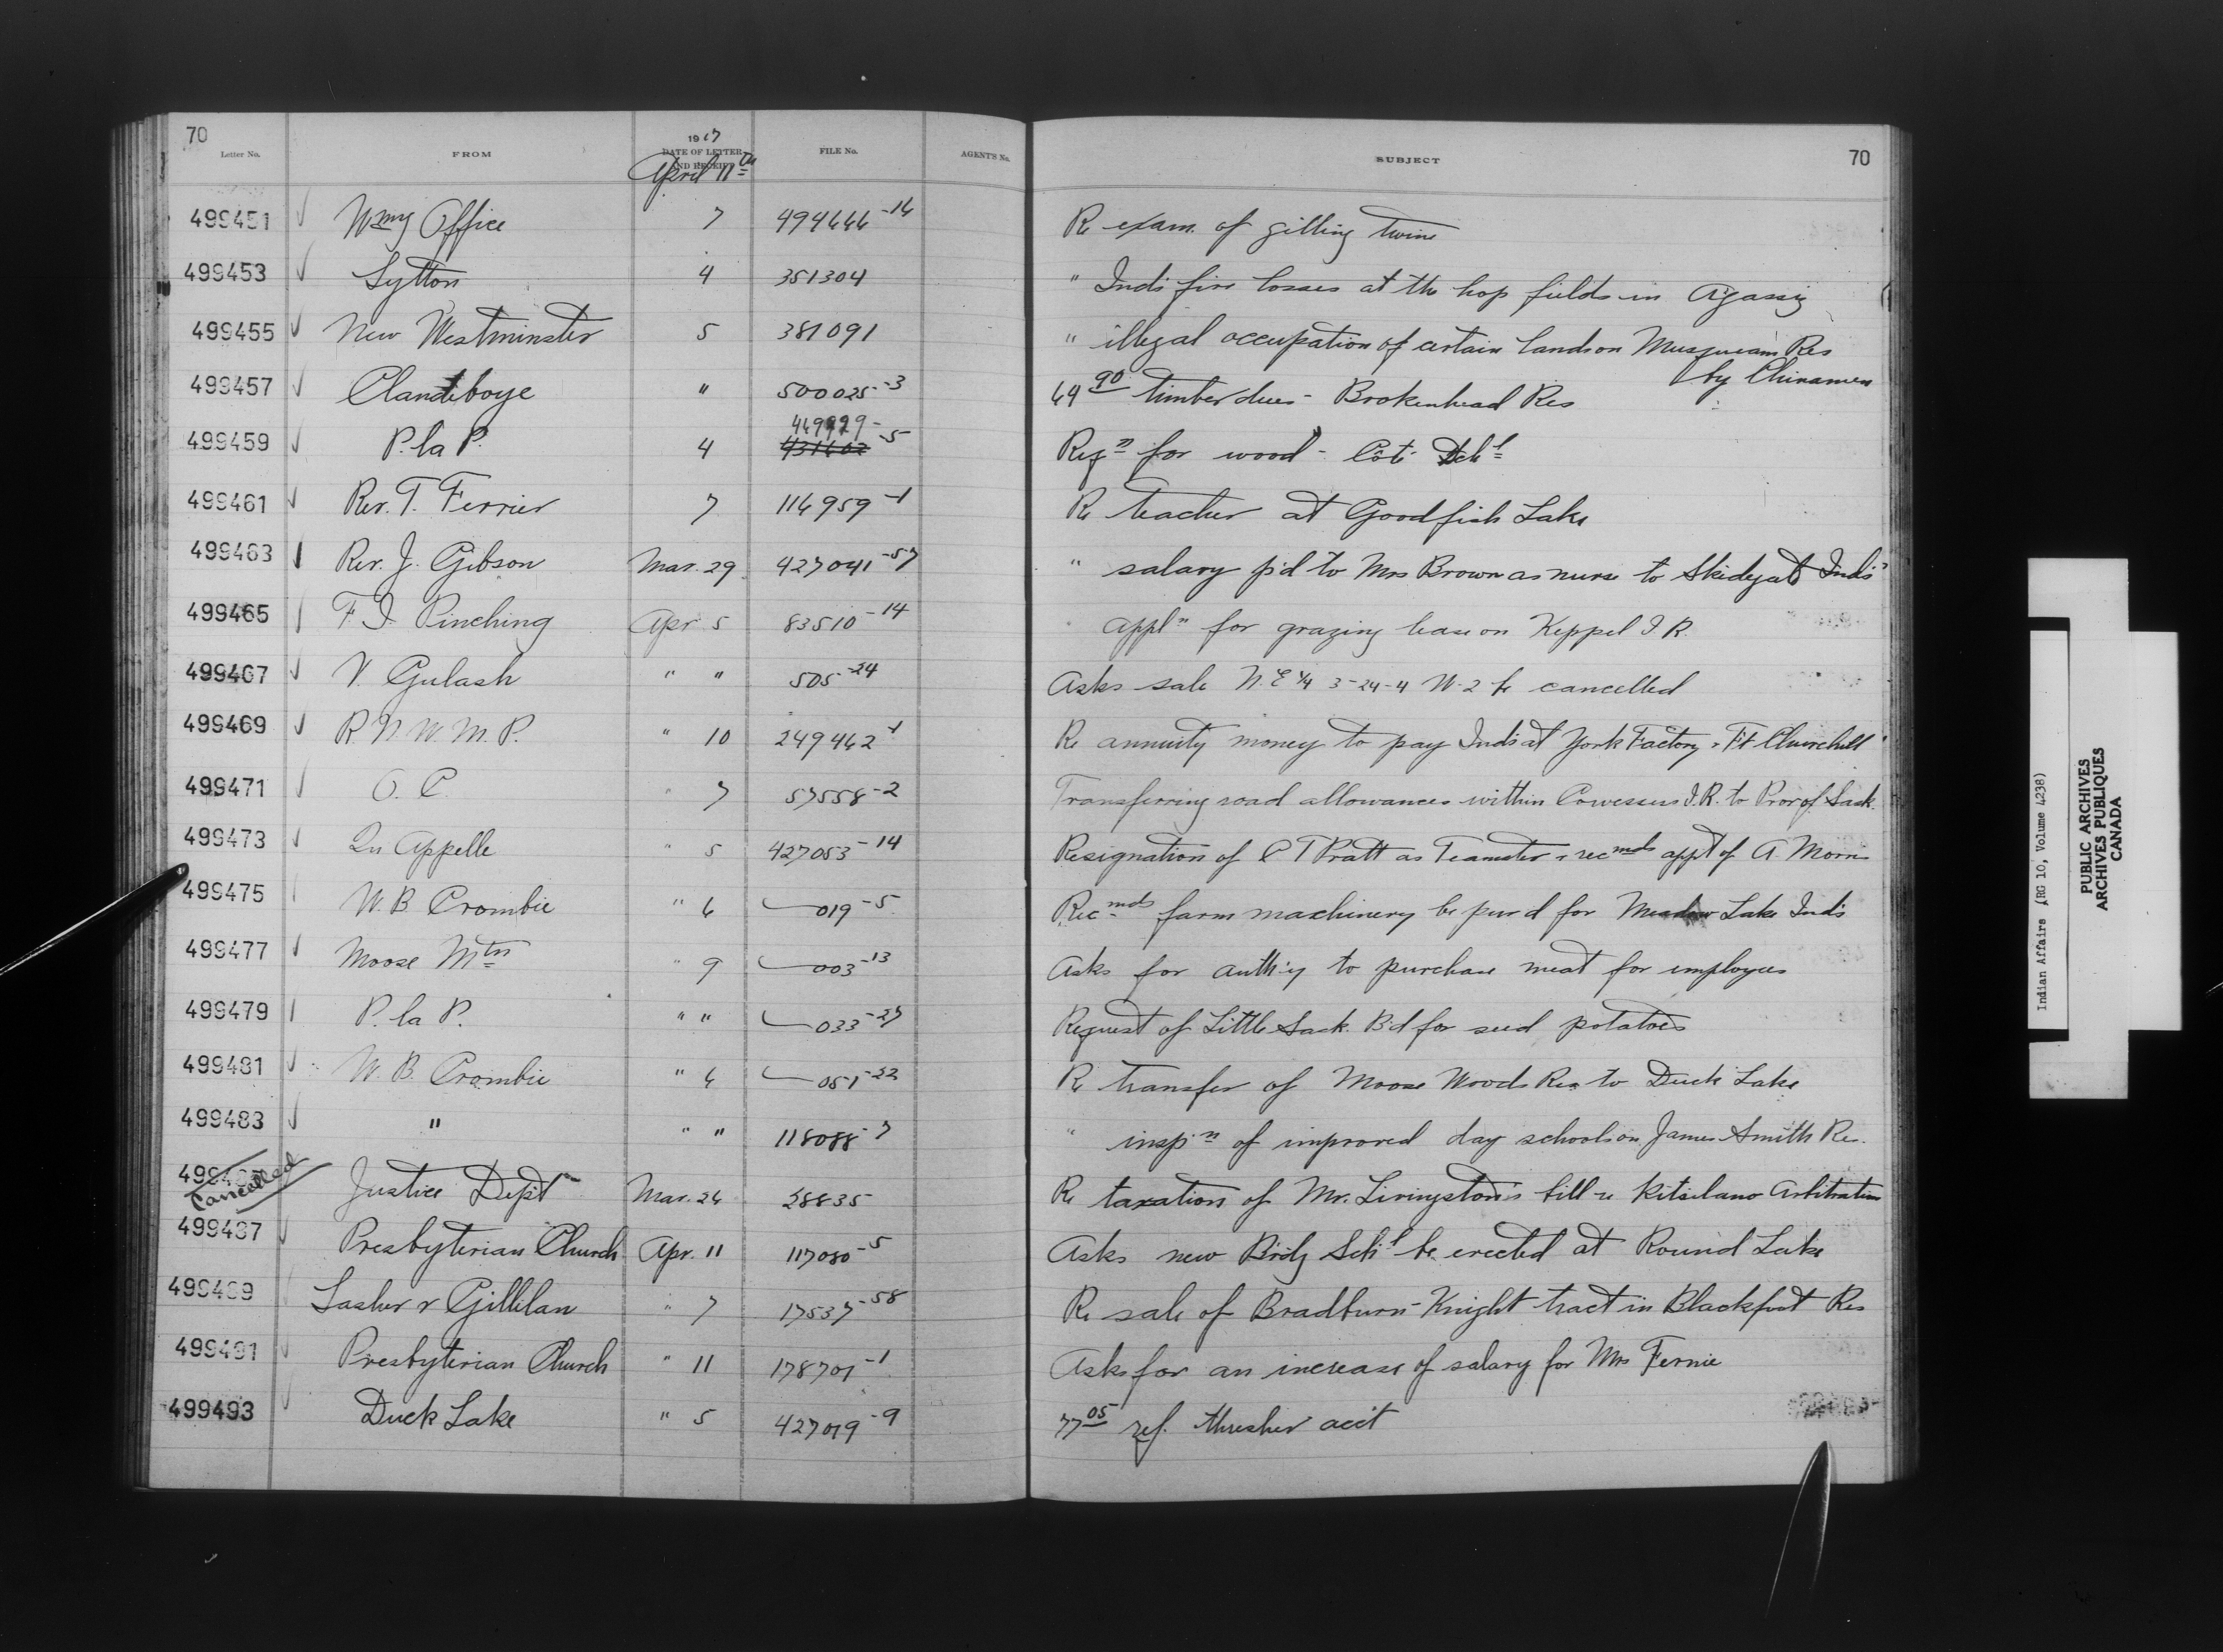 70
Letter No. FROM 1917 DATE OF LETTER AND RECEIPT FILE No. AGENT'S No. SUBJECT 70
April 11th
499451 Wpg Office 7 494644-14 Re exam. of gilling twine
499453 Lytton 4 351304 " Inds fire losses at the hop fields in Agassiz
499455 New Westminster 5 381091 " illegal occupation of certain lands on Musqueam Res
by Chinamen
499457 Clandeboye " 500025-3 69 90 timber dues - Brokenhead Res
449929-
499459 P. la P. 4 431602-5 Reqn for wood - Coté Schl
499461 Rev. T. Ferrier 7 114959-1 Re teacher at Goodfish Lake
499463 Rev. J. Gibson Mar. 29 427041-57 " salary p'd to Mrs Brown as nurse to Skidegate Inds
499465 F. J. Pinching Apr 5 83510-14 appln for grazing lease on Keppel I.R.
499467 V. Gulash " " 505-24 Asks sale N.E 1/4 3-24-4 W-2 be cancelled
499469 R.N.W.M.P. " 10 249462-1 Re annuity money to pay Inds at York Factory & Ft Churchill
499471 O. C. " 7 57558-2 Transferring road allowances within Cowessess I.R. to Prov of Sask.
499473 Qu Appelle " 5 427053-14 Resignation of C T Pratt as Teamster & recmds appt of A. Morris
499475 W. B. Crombie " 6 019-5 Recmds farm machinery be pur'd for Meadow Lake Inds
499477 Moose Mtn " 9 003-13 Asks for auth'y to purchase meat for employees
499479 P. la P. " " 033-27 Request of Little Sask. B'd for seed potatoes
499481 W. B. Crombie " 6 051-22 Re transfer of Moose Woods Res to Duck Lake
499483 " " " 118088-7 " insp'n of improved day schools on James Smith Res.
499485 Cancelled Justice Dep't Mar. 26 28835 Re taxation of Mr. Livingston's bill re Kitsilano Arbitration
499487 Presbyterian Church Apr. 11 117080-5 Asks new B'rdg Schl be erected at Round Lake
499489 Lasher & Gillilan " 7 17537-58 Re sale of Bradburn-Knight tract in Blackfoot Res
499491 Presbyterian Church " 11 178701-1 Asks for an increase of salary for Mrs Fernie
499493 Duck Lake " 5 427019-9 77 05 ref. thresher acc't
Indian Affairs (RG 10, Volume 4238)
PUBLIC ARCHIVES
ARCHIVES PUBLIQUES
CANADA